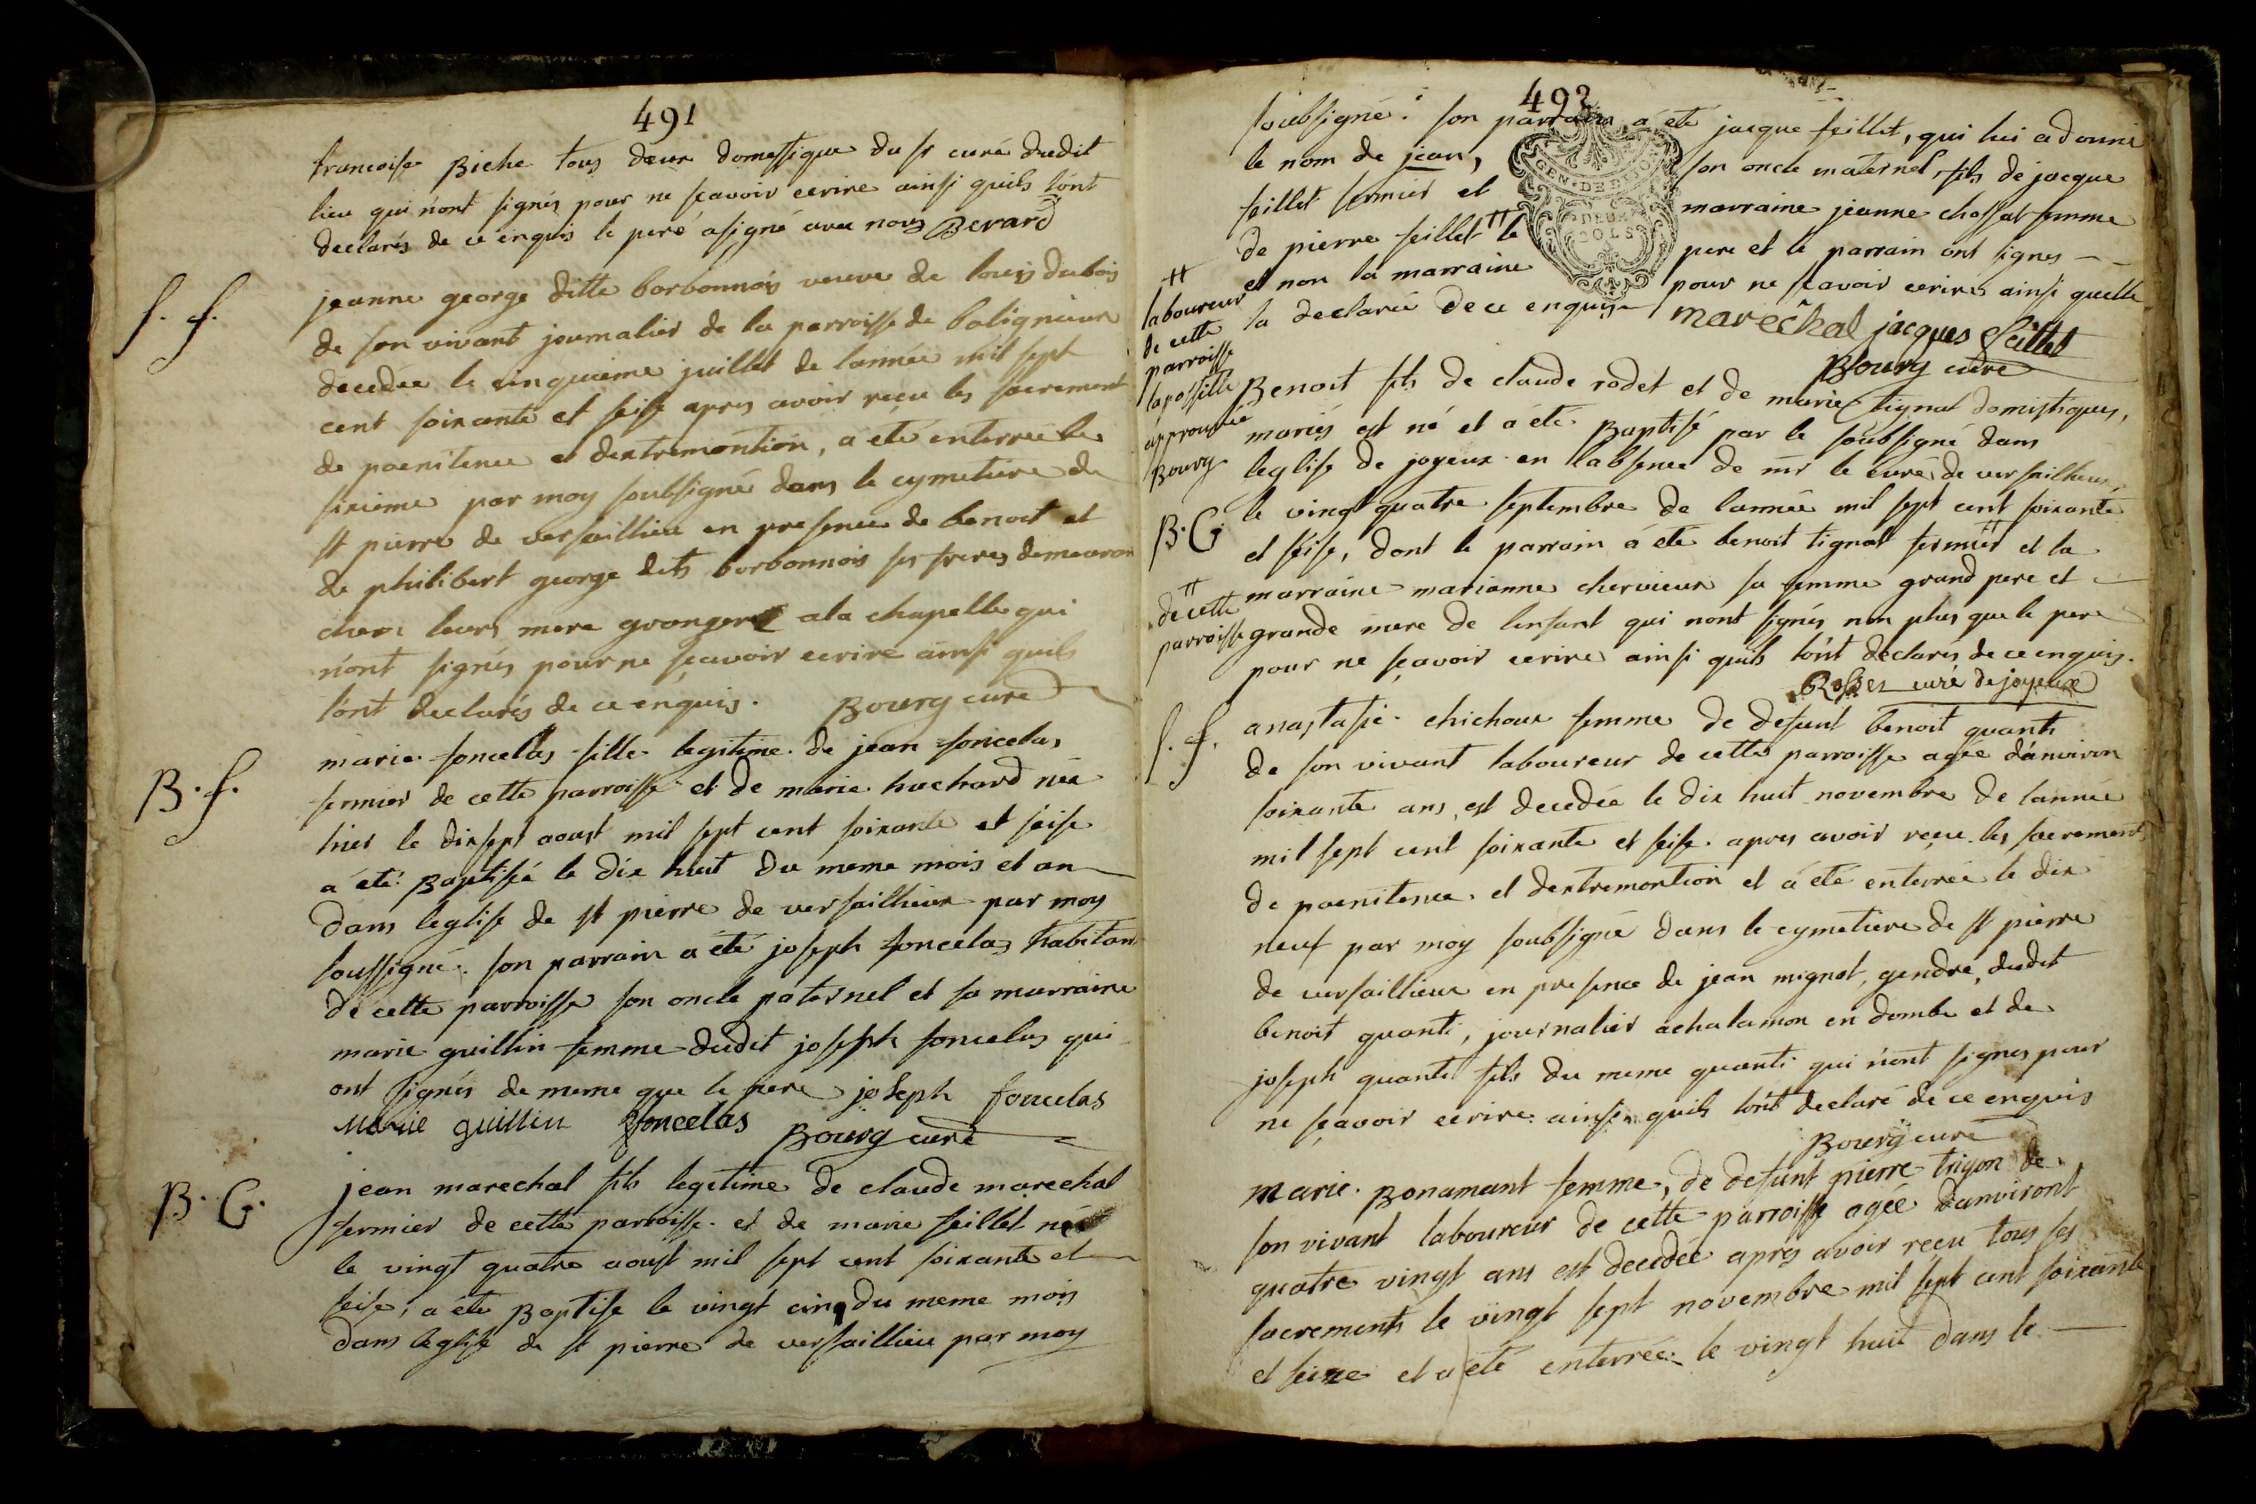 491
francoise Biche tous deux domestique du sr curé dudit
lieu qui n'ont signés pour ne scavoir ecrire ainsi quils l'ont
declarés de ce enquis le peré a signé avec nous Berard
S. f.
jeanne george ditte borbonnois veuve de louis dubois
de son vivant journalier de la parroisse de baligneux
decedée le cinquieme juillet de lannée mil sept
cent soixante et seise apres avoir reçu les sacrement
de poenitence et dextremontion, a eté enterrée le
sixieme par moy soubsigné dans le cymetiere de
st pierre de versaillieu en presence de benoit et
de philibert george dits borbonnois ses freres demeurant
chez leurs mere grangere a la chapelle qui
n'ont signés pour ne sçavoir ecrire ainsi quils
l'ont declarés de ce enquis. Bourg curé
B. f.
marie foncelas fille legitime de jean foncelas
fermier de cette parroisse et de marie huchard née
hier le dixsept aoust mil sept cent soixante et seise
a eté Baptisée le dix huit du meme mois et an
dans leglise de st pierre de versaillieux par moy
soussigné. son parrain a été joseph foncelas habitant
de cette parroisse son oncle paternel et sa marraine
marie guillin femme dudit joseph foncelas qui
ont signés de meme que le pere joseph foncelas
Marie guillin foncelas Bourg curé
B. G.
jean marechal fils legitime de claude marechal
fermier de cette parroisse et de marie feillet né
le vingt quatre aoust mil sept cent soixante et
seise, a eté Baptisé le vingt cinq du meme mois
dans leglise de st pierre de versaillieu par moy
492
soubsigné. son parrain a eté jacque feillet, qui lui a donné
le nom de jean, son oncle maternel, fils de jacque
feillet fermier et marraine jeanne chossat femme
de pierre feillet # le pere et le parrain ont signes
et non la marraine pour ne scavoir ecrire ainsi quelle
la declarée de ce enquise marechal jacques feillet
Bourg curé
GEN. DE DIJON
DEUX
SOLS
#
laboureur
de cette
parroisse
lapostille
approuvée
Bourg
B. G
Benoit fils de claude rodet et de marie tignat domestiques,
mariés est né et a eté Baptisé par le soubsigné dans
leglise de joyeux en labsence de mr le curé de versaillieux
le vingt quatre septembre de lannée mil sept cent soixante
et seise, dont le parrain a eté benoit tignat fermier # et la
marraine marianne chervieux sa femme grand pere et
grande mere de lenfant qui nont signés non plus que le pere
pour ne sçavoir ecrire ainsi quils l'ont declarés de ce enquis.
curé de joyeux
#
de cette
parroisse
S. f.
anastasie chichoux femme de defunt benoit quanti
de son vivant laboureur de cette parroisse agée d'anviron
soixante ans, est decedée le dix huit novembre de lannée
mil sept cent soixante et seise apres avoir reçu les sacrements
de poenitence et dextremontion et a eté enterrée le dix
neuf par moy soubsigné dans le cymetiere de st pierre
de versaillieux en presence de jean mignot, gendre, dudit
benoit quanti, journalier a chalamon en dombe et de
joseph quanti fils du meme quanti qui n'ont signes pour
ne sçavoir ecrire ainsi quils l'ont declaré de ce enquis
Bourg curé
marie Bonamant femme, de defunt pierre trigon de
son vivant laboureur de cette parroisse agée d'anviront
quatre vingt ans est decedée apres avoir reçu tous ses
sacrements le vingt sept novembre mil sept cent soixante
et seize et a eté enterrée le vingt huit dans le